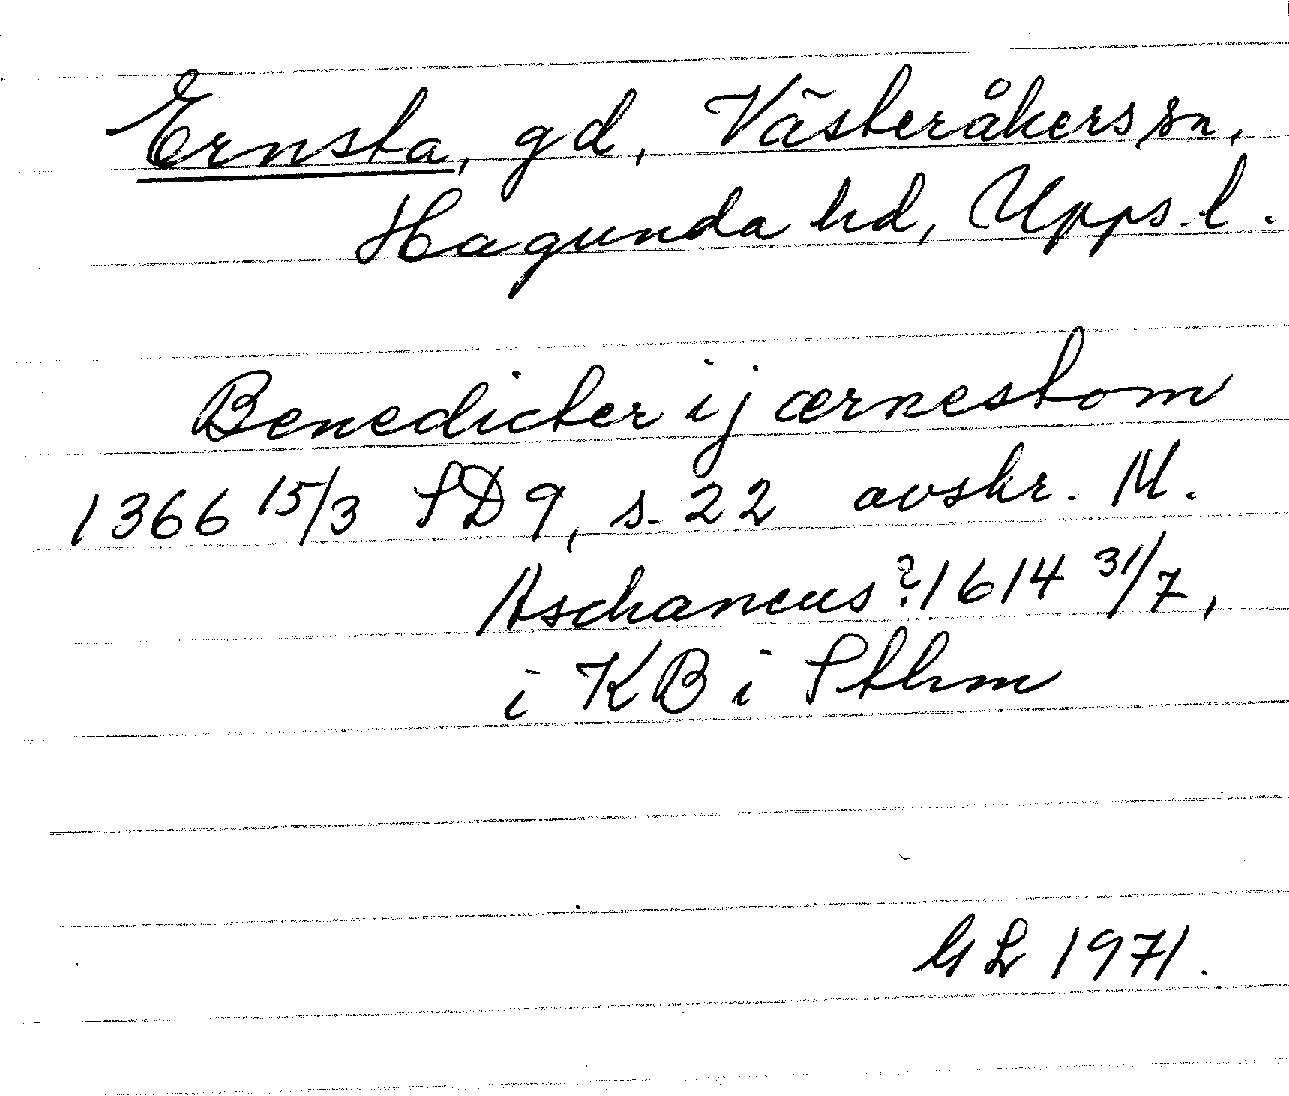 Ernsta, gd, Västeråkers sn,
Hagunda hd, Upps. l.
Benedicter ij ærnestom
1366 15/3 SD 9, s. 22 avskr. M.
Aschaneus? 1614 31/7,
i KB i Sthlm
GL 1971.